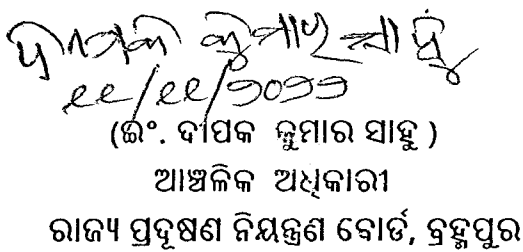 ଦୀପକ କୁମାର ସାହୁ
୧୧/୧୧/୨୦୨୨
(ଇଂ. ଦୀପକ କୁମାର ସାହୁ )
ଆଞ୍ଚଳିକ ଅଧିକାରୀ
ରାଜ୍ୟ ପ୍ରଦୂଷଣ ନିୟନ୍ତ୍ରଣ ବୋର୍ଡ, ବ୍ରହ୍ମପୁର